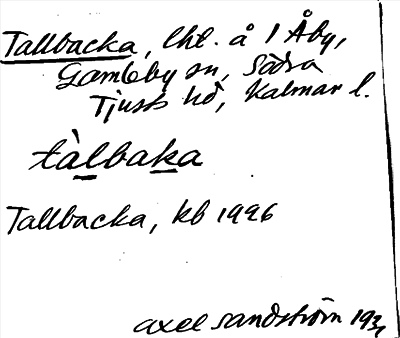 Tallbacka, lht. å 1 Åby,
Gamleby sn, Södra
Tjusts hd, Kalmar l.
tàlbaka
Tallbacka, kb 1996
Axel Sandström